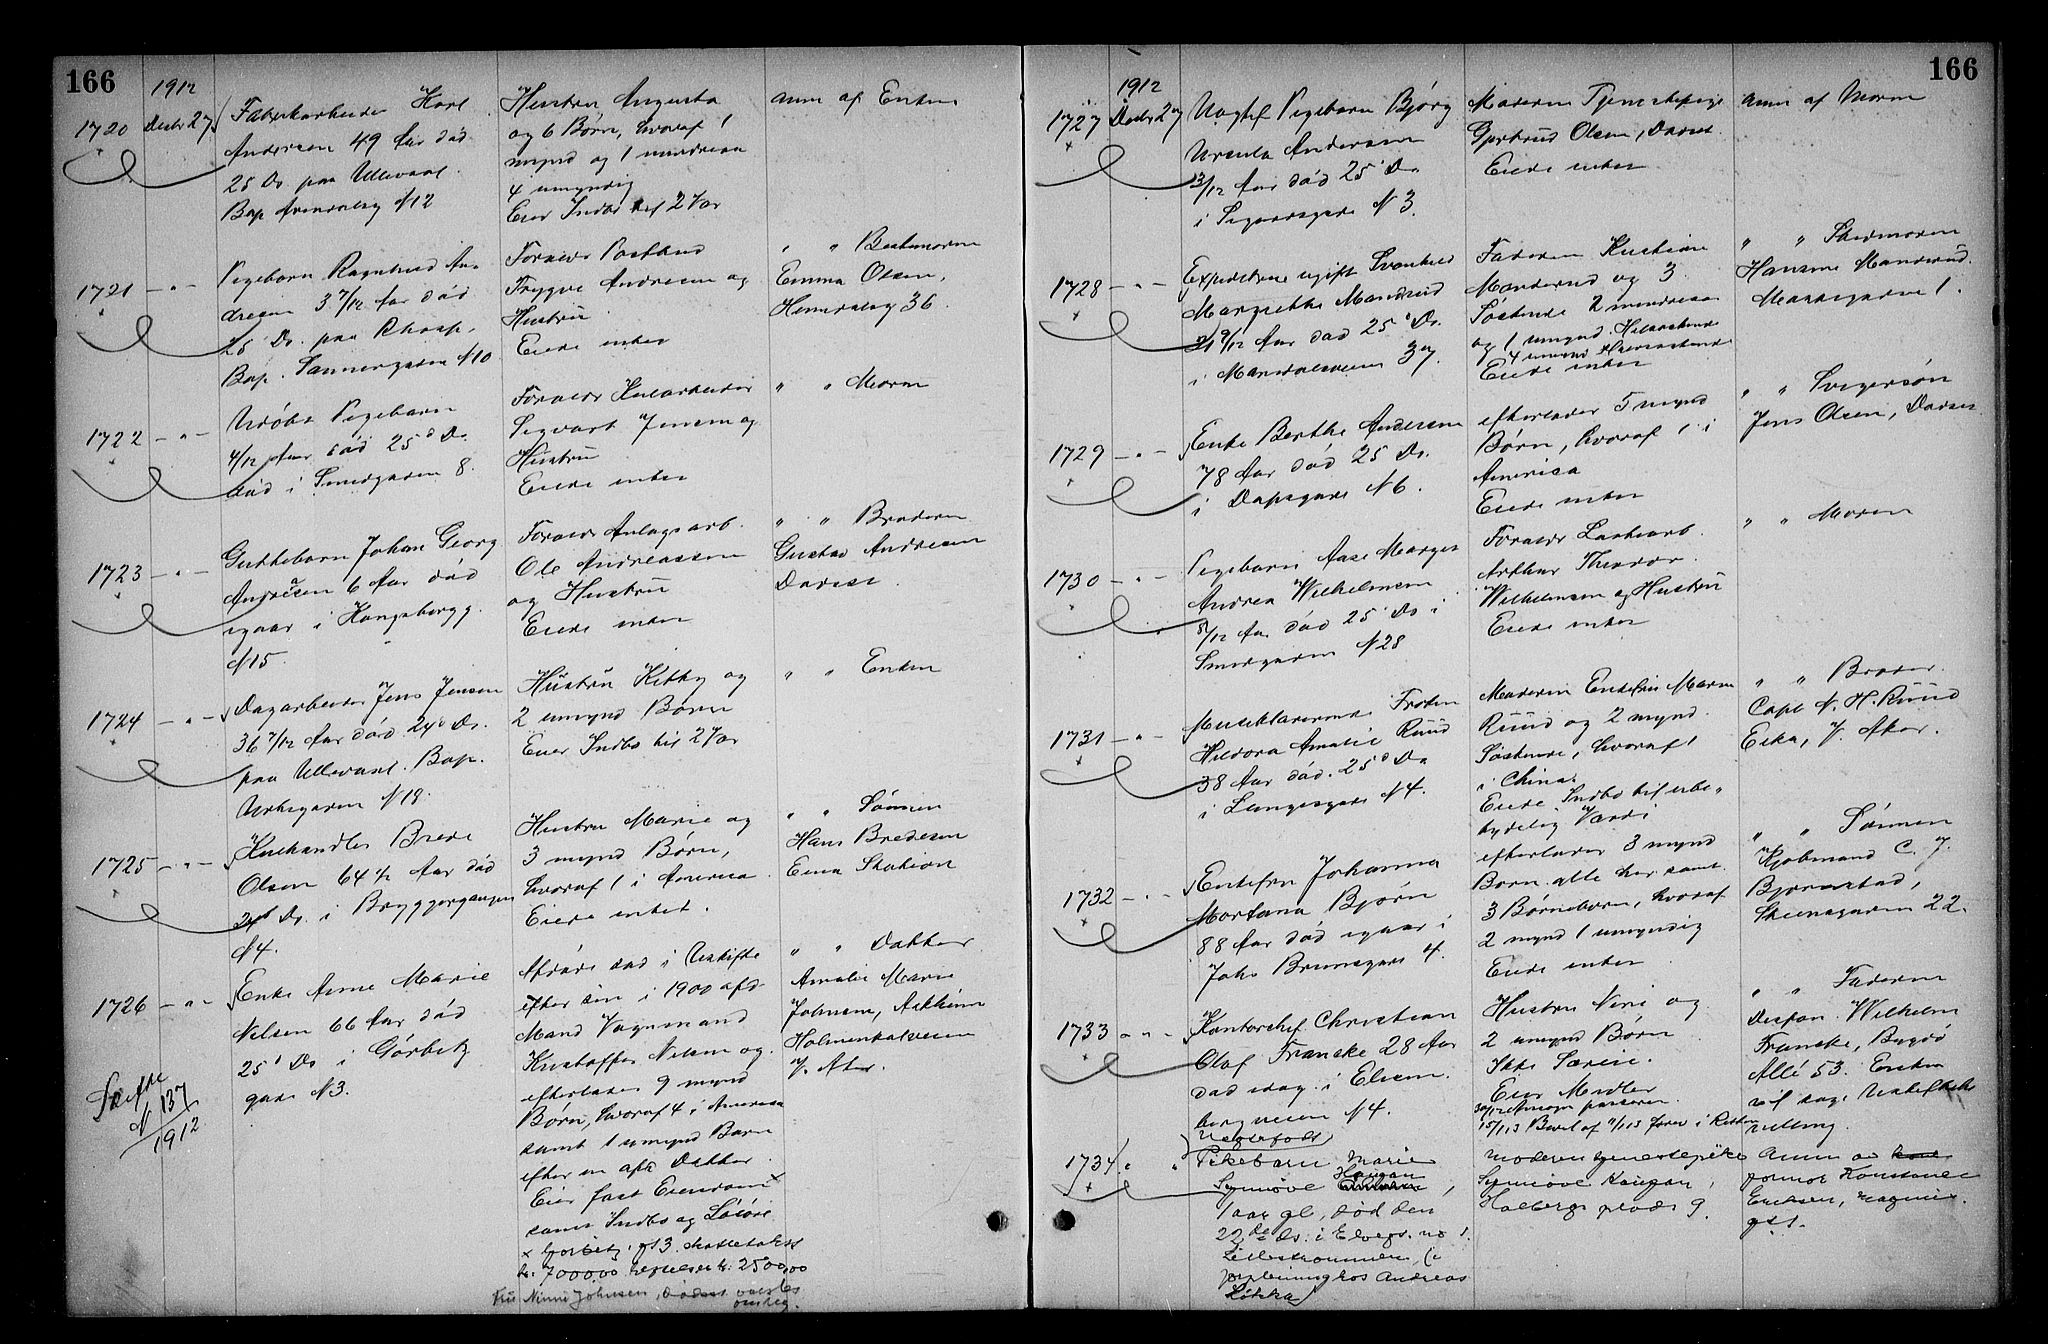 166
1912
1720 Decbr 27
Fabrikarbeider Karl
Andersen 49 Aar død
25 Ds paa Ullevaal
Bop Arendalsg N 12
Hustru Augusta
og 6 Børn, hvoraf 1
mynd og 1 mindreaa
4 umyndig
Eier Indbo til 27 ar
Anm af Enken
1721 - " -
Pigebarn Ragnhild An-
dresen 3 7/12 Aar død
25 Ds. paa Rhosp.
Bop. Sannergaden N 10
Foraldr Postbud
Trygve Andresen og
Hustru
Eiede intet
" " Bestemoren
Emma Olsen,
Heimdalsg 36.
1722 - " -
Udøbt Pigebarn
4/12 Aar død 25 d Ds.
død i Smedgaden 8.
Foraldr
Sigvart Jensen og
Hustru
Eiede intet
" " Moren
1723 - " -
Guttebarn Johan Georg
Andresen 6 Aar død
igaar i Kongsbergg.
N 15.
Foraldr Anlagsarb.
Ole Andreassen
og Hustru
Eiede intet
" " Broderen
Gustav Andresen
Dersst.
1724 - " -
Dagarbeider Jens Jensen
36 7/12 Aar død 24 d Ds.
paa Ullevaal. Bop.
Urtegaden N 19.
Hustru Kitty og
2 umynd Børn
Eier Indbo til 27 ar
" " Enken
1725 - " -
Kulhandler Brede
Olsen 64 1/2 Aar død
24 d Ds. i Bryggergangen
N 4.
Hustru Marie og
3 mynd Børn,
hvoraf 1 i America.
Eiede intet.
" " Sønnen
Hans Bredesen
Eina Station
1726 - " -
Enke Anne Marie
Nilsen 66 Aar død
25 d Ds i Gørbitz
gade N 3.
Skifte
N 137
1912
Afdøde sad i Uskifte
efter sin i 1900 afd
Mand Vognmand
Kristoffer Nilsen og
efterlader 9 mynd
Børn, hvoraf 4 i America
samt 1 umynd Barn
efter en afd Datter.
Eier fast Eiendom x
samt Indbo og Løsøre
x Gørbitz. gt 3. skattetakst
kr. 70000,00 heftelser kr. 25000,00
Fru Ninni Johnsen, dødsst
" " Datter
Amalie Marie
Johnsen,
Holmenkolveien
V. Aker.
166
1912
1727 Decbr 27
Uægtef Pigebarn Bjørg
Ursula Andersen
3/12 Aar død 25 d Ds
i Sigurdsgade N 3.
Moderen Tjenestepige
Gjertrud Olsen, Dersst
Eiede intet
Anm af Moren
1728 - " -
Expeditrice ugift Svanhild
Margrethe Manderud
21 9/12 Aar død 25 d Ds.
i Maridalsveien 37.
Faderen Kristian
Manderud og 3
Søskende 2 mindreaa
og 1 umynd. Helsøskende
4 umynd Halvsøskende
Eiede intet
" " Stedmoren
Hansine Manderud.
Maridsgaden 1.
1729 - " -
Enke Berthe Andersen
78 Aar død 25 Ds.
i Dapsgade N 6.
efterlader 5 mynd
Børn, hvoraf 1 i
America
Eiede intet
" " Svigersøn
Jens Olsen, Dersst
1730 - " -
Pigebarn Aase Margit
Andrea Wilhelmsen
8/12 Aar død 25 d Ds i
Smedgaden N 28
Foraldr Lastearb.
Arthur Theodor
Wilhelmsen og Hustru
Eiede intet
" " Moren
1731 - " -
Musiklærerinde Frøken
Hildora Amalie Ruud
38 Aar død. 25 d Ds
i Langesgade N 4.
Moderen Enkefru Maren
Ruud og 2 mynd.
Søskende, hvoraf 1
i China.
Eiede Indbo til ube-
tydelig Værdi
" " Broder
Capt N. H. Ruud
Eika, V. Aker.
1732 - " -
Enkefru Johanna
Mortana Bjørn
88 Aar død igaar i
Johs Brunsgade 4.
efterlader 3 mynd
Børn. alle her samt
3 Børnebørn, hvoraf
2 mynd 1 umyndig
Eiede intet
" " Sønnen
Kjøbmand C. F.
Bjørnstad,
Skiensgaden 22.
1733 " " -
Kontorchef Christian
Olaf Franske 28 Aar
død idag. i Elisen-
bergveien N 4.
Hustru Nini og
2 umynd Børn
Ikke Særeie.
Eier Midler
30/12 Ansøgn passeren.
15/1 13 Bevil af 11/1 13 forev i Retten
" " Faderen
Dispon. Wilhelm
Franske, Bygdø
Allé 53. Enken
vil søge Uskiftebe
villing.
1734 " "
Uægtefødt
Pikebarn Marie
Synnøve Haugan,
1 aar gl, død den
22 de ds. i Elvegt. no 1.
Lillestrømmen (i
forpleining hos Andreas
Løkka)
Moderen tjenestepike
Synnøve Haugan,
Holbergs plads 9.
Anm av
formor Konstanse
Eriksen,
gt 1.